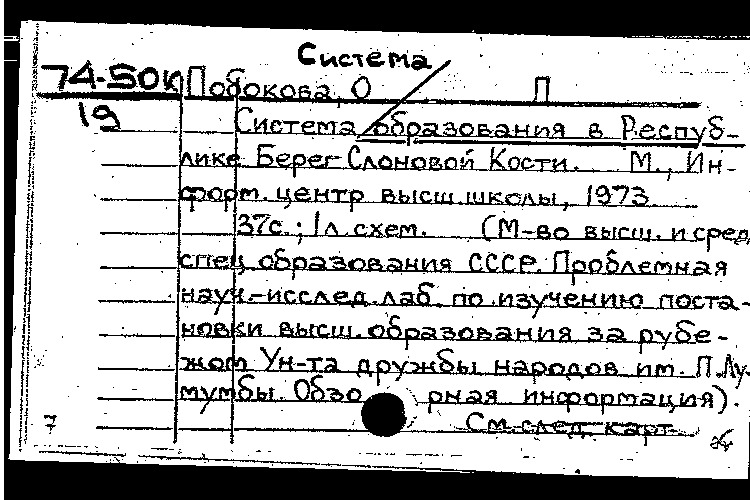 Система
74-50к Побокова, О П
19 Система образования в Респуб-
лике Берег Слоновой Кости. М., Ин-
форм. центр высш. школы, 1973
37с.; 1л. схем. (М-во высш. и сред.
спец. образования СССР. Проблемная
науч.-исслед. лаб. по изучению поста-
новки высш. образования за рубе-
жом Ун-та дружбы народов им. П.Лу-
мумбы. Обзорная информация).
См. след. карт.
7